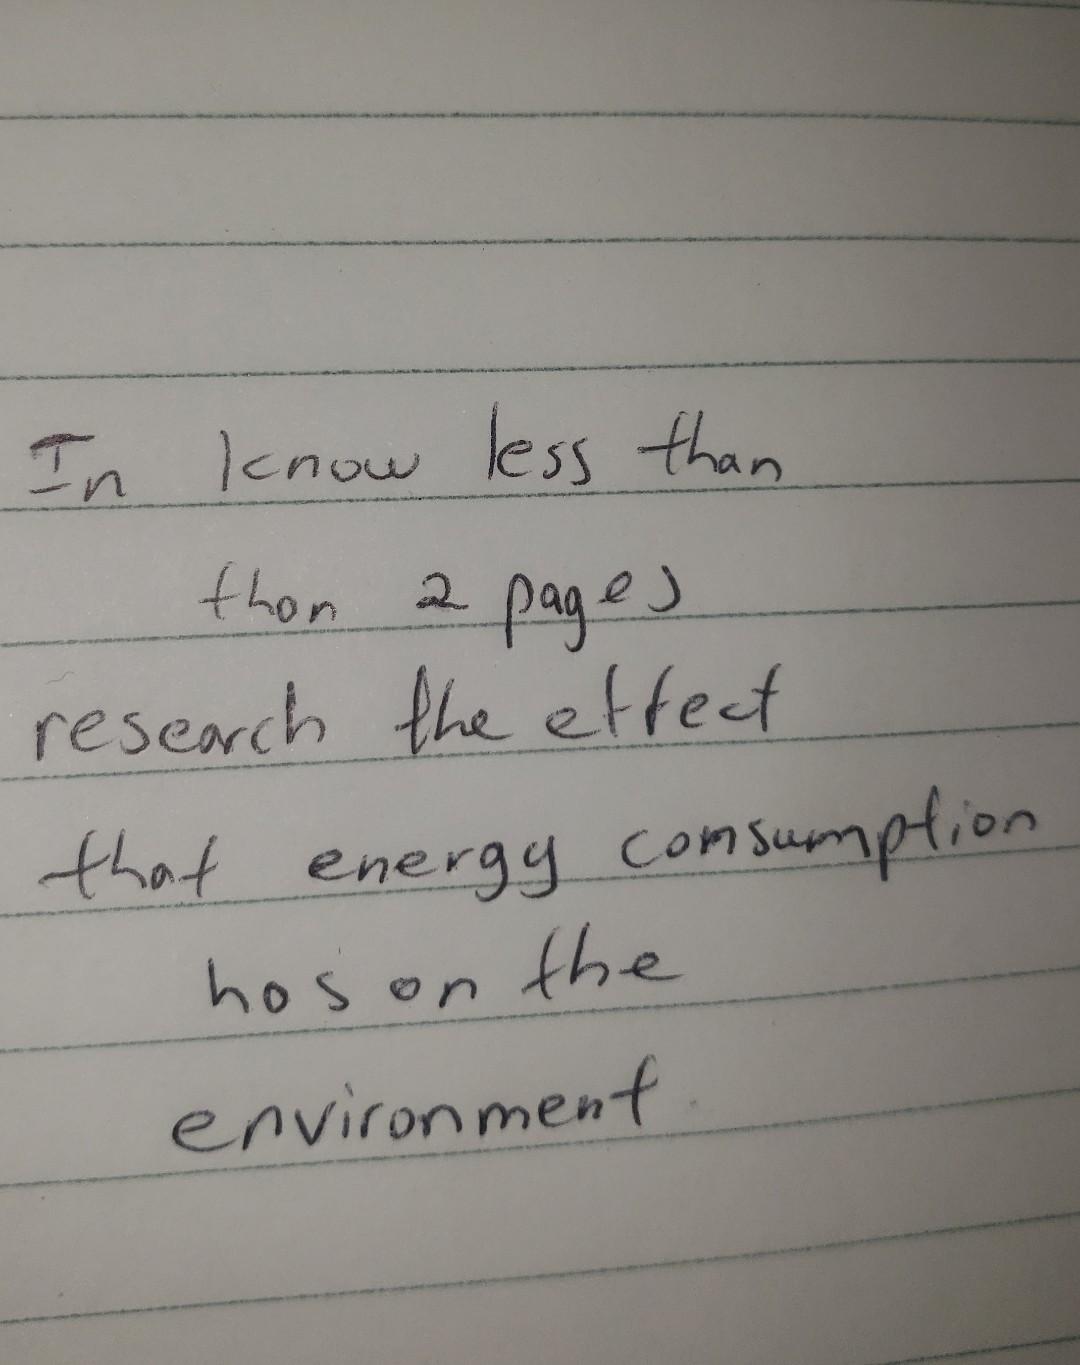 In know less than
than 2 pages
research the effect
that energy consumption
has on the
environment.